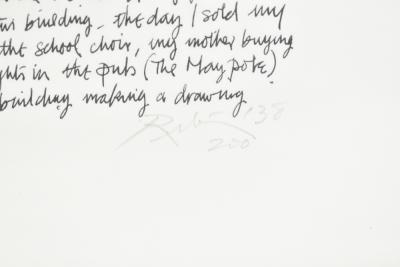 building - the day I sold my
the school choir, my mother buying
in the pub (The Maypole)
building making a drawing
138
200